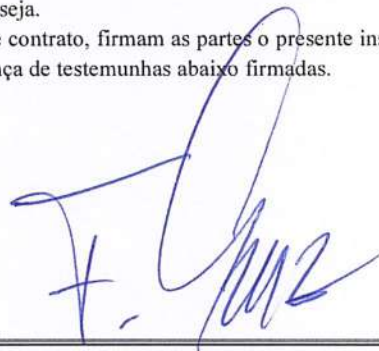 seja.
contrato, firmam as partes o presente
ça de testemunhas abaixo firmadas.